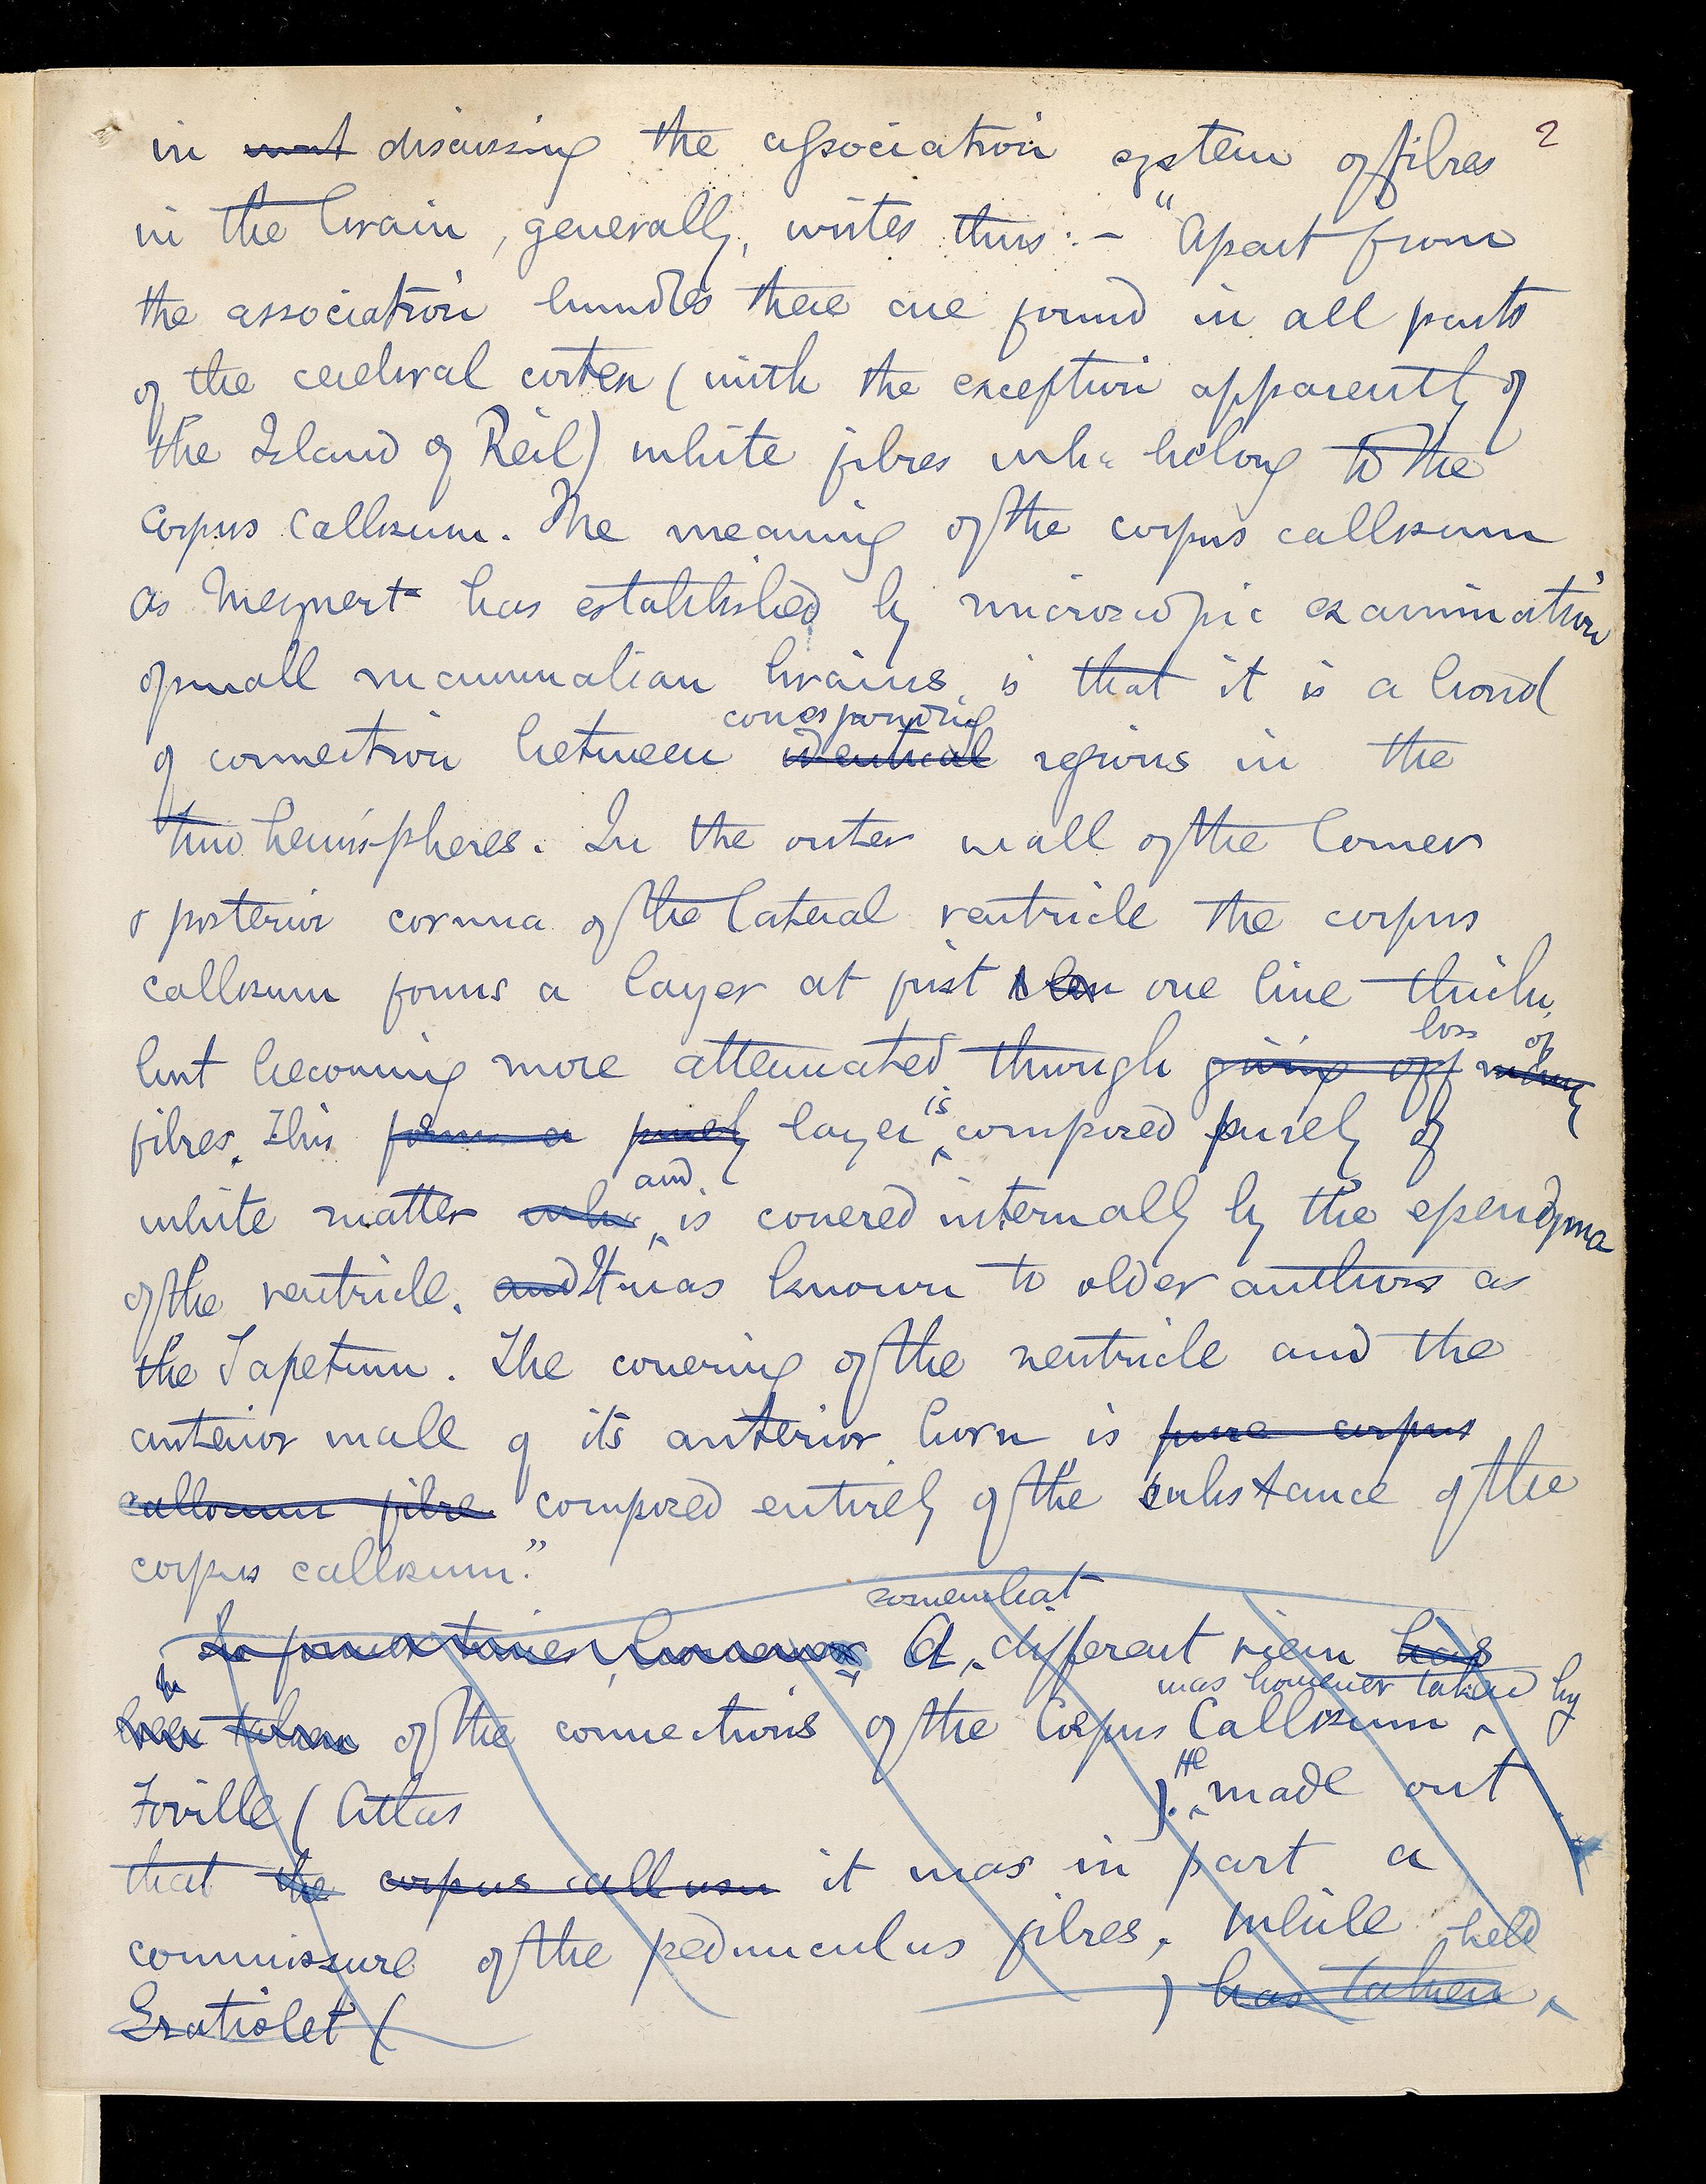 2
in discussing the association system of fibres
in the brain, generally, writes thus:- "Apart from
the association bundles there are found in all parts
of the cerebral cortex (with the exception apparently of
the Island of Reil) white fibres whc belong to the
corpus callosum. The meaning of the corpus callosum
as Meynert has established by microscopic examination
of small mammalian brains, is that it is a bond
corresponding
of connection between identical regions in the
two hemispheres. In the outer wall of the lower
& posterior cornua of the lateral ventricle the corpus
callosum forms a layer at first one line thick,
loss of
but becoming more attenuated through giving off
fibres. This form a purely layer is composed purely of
and
white matter whc is covered internally by the ependyma
of the ventricle. and It was known to older authors as
the Tapetum. The covering of the ventricle and the
anterior wall of its anterior horn is pure corpus
callosum fibre composed entirely of the substance of the
corpus callosum."
somewhat
however A different view has
was however taken by
been taken of the connections of the Corpus Callosum
Foville (Atlas ). He made out
that the corpus callosum it was in part a
commissure of the pedunculus fibres, while held
Gratiolet ( ) has taken